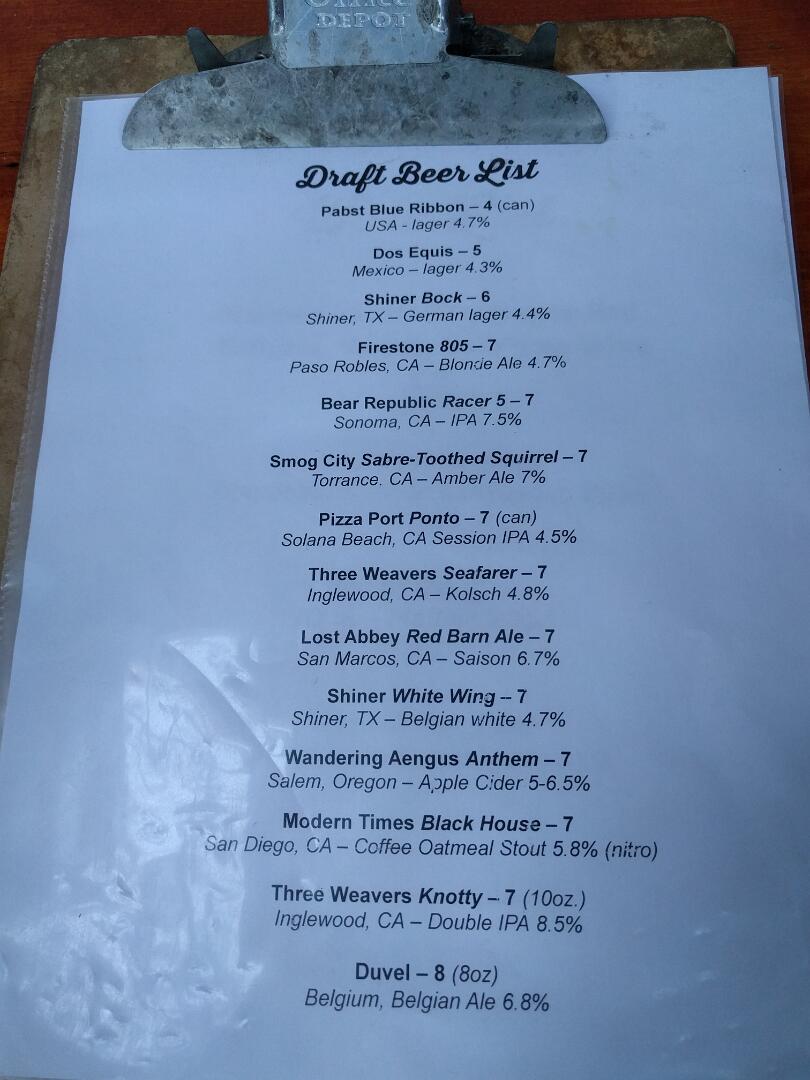 Office
DEPOT
Draft Beer List
Pabst Blue Ribbon – 4 (can)
USA - lager 4.7%
Dos Equis – 5
Mexico – lager 4.3%
Shiner Bock – 6
Shiner, TX – German lager 4.4%
Firestone 805 – 7
Paso Robles, CA – Blonde Ale 4.7%
Bear Republic Racer 5 – 7
Sonoma, CA – IPA 7.5%
Smog City Sabre-Toothed Squirrel – 7
Torrance. CA – Amber Ale 7%
Pizza Port Ponto – 7 (can)
Solana Beach, CA Session IPA 4.5%
Three Weavers Seafarer – 7
Inglewood, CA – Kolsch 4.8%
Lost Abbey Red Barn Ale – 7
San Marcos, CA – Saison 6.7%
Shiner White Wing – 7
Shiner, TX – Belgian white 4.7%
Wandering Aengus Anthem – 7
Salem, Oregon – Apple Cider 5-6.5%
Modern Times Black House – 7
San Diego, CA – Coffee Oatmeal Stout 5.8% (nitro)
Three Weavers Knotty – 7 (10oz.)
Inglewood, CA – Double IPA 8.5%
Duvel – 8 (8oz)
Belgium, Belgian Ale 6.8%